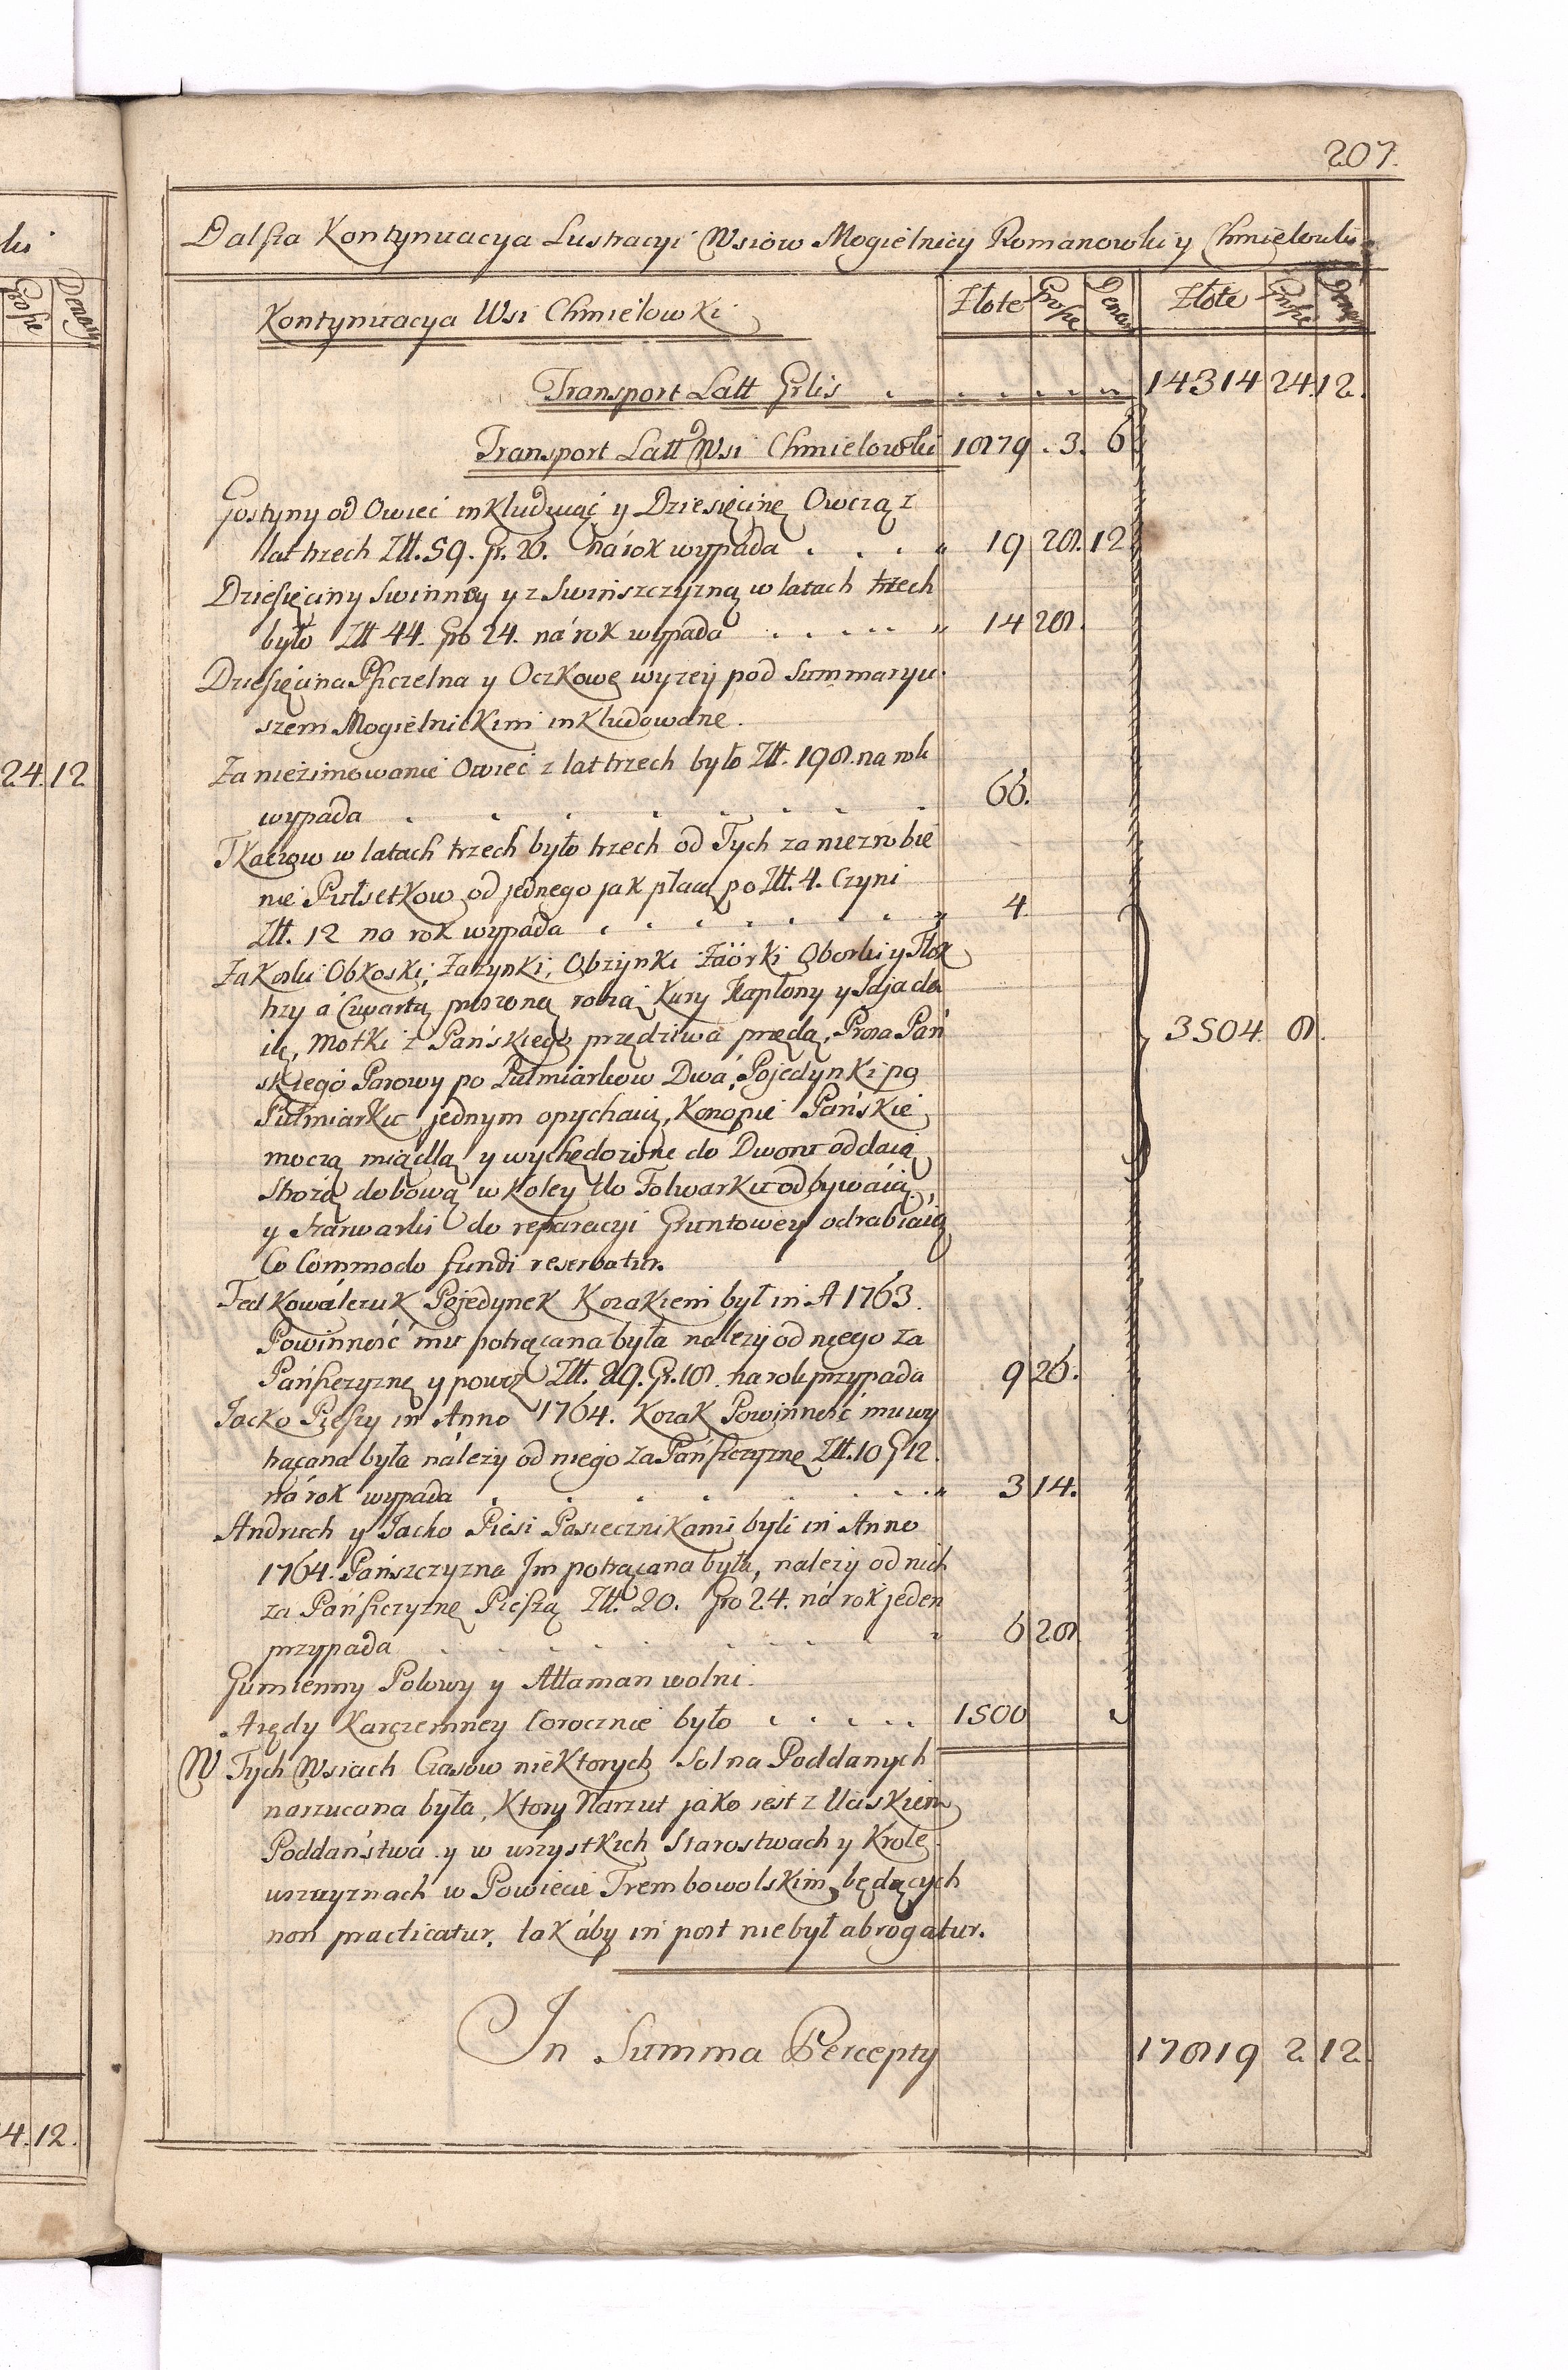 207.
Dalsza Kontynuacya Lustracyi Wsiow Mogielnicy Romanowki y Chmielowki
Kontynuacya Wsi Chmielowki
Złote Grosze Denar Złote Grosze Denar
Transport Latt Grlis . . . . . „ 14314 24. 12.
Transport Latt Wsi Chmielowki 1879 . 3. 6
Gostyny od Owiec inkluduiąc y Dziesięcinę Owczą z
lat trzech Złt. 59. Gr. 26. na rok wypada . . . „ 19 28. 12
Dziesięciny Swinney y z Swinszczyzną w latach trzech
było Złt 44. Gro 24. na rok wypada . . . . . „ 14 28.
Dziesięcina Pszczelna y Oczkowe wyzey pod Summaryu
szem Mogielnickim inkludowane.
Za niezimowanie Owiec z lat trzech było Złt. 198. na rok
wypada . . . . . . . 66.
Tkaczow w latach trzech było trzech od Tych za niezrobie
nie Pułsetkow od jednego jak płacą po Złt. 4. Czyni
Złt. 12 na rok wypada . . . . . . . „ 4
Zakoski Obkoski, Zazynki, Obzynki Zaorki Oborki y Tłok
trzy a Czwartą proszoną robią Kury Kapłony y Jdja da
ią, Motki z Pańskiego przędziwa przędą, Prosa Pań
skiego Parowy po Pułmiarkow Dwa, Pojedynki po
Pułmiarku jednym opychaią, Konopie Pańskie
moczą miądlą y wychędozone do Dworu oddaią
Strozą dobową w Koley do Folwarku odbywaią
y szarwarki do reparacyi Gruntowey odrabiaią
Co Commodo fundi reservatur.
3504. 8.
Fed Kowalczuk Pojedynek Kozakiem był in A 1763.
Powinność mu potrącana była nalezy od niego za
Pańszczyznę y powoz Złt. 29. Gr. 18. na rok przypada 9 26.
Jacko Pieszy in Anno 1764. Kozak Powinność mu wy
trącana była nalezy od niego za Pańszczyznę Złt. 10 G 12.
na rok wypada . . . . . . . „ 3 14.
Andruch y Jacko Piesi Pasiecznikami byli in Anno
1764. Pańszczyzna Jm potrącana była, nalezy od nich
za Pańszczyznę Pieszą Złt. 20. Gro 24. na rok jeden
przypada . . . . . . . „ 6 28
Gumienny Polowy y Attaman wolni.
Arędy Karczemney Corocznie było . . . . . 1500
W Tych Wsiach Czasow niektorych Sol na Poddanych
narzucana była, Ktory Narzut jako iest z Uciskiem
Poddaństwa y w wszystkich Starostwach y Krole
wszczyznach w Powiecie Trembowolskim będących
non practicatur, tak aby in post nie był abrogatur.
In Summa Percepty 17819 2. 12.